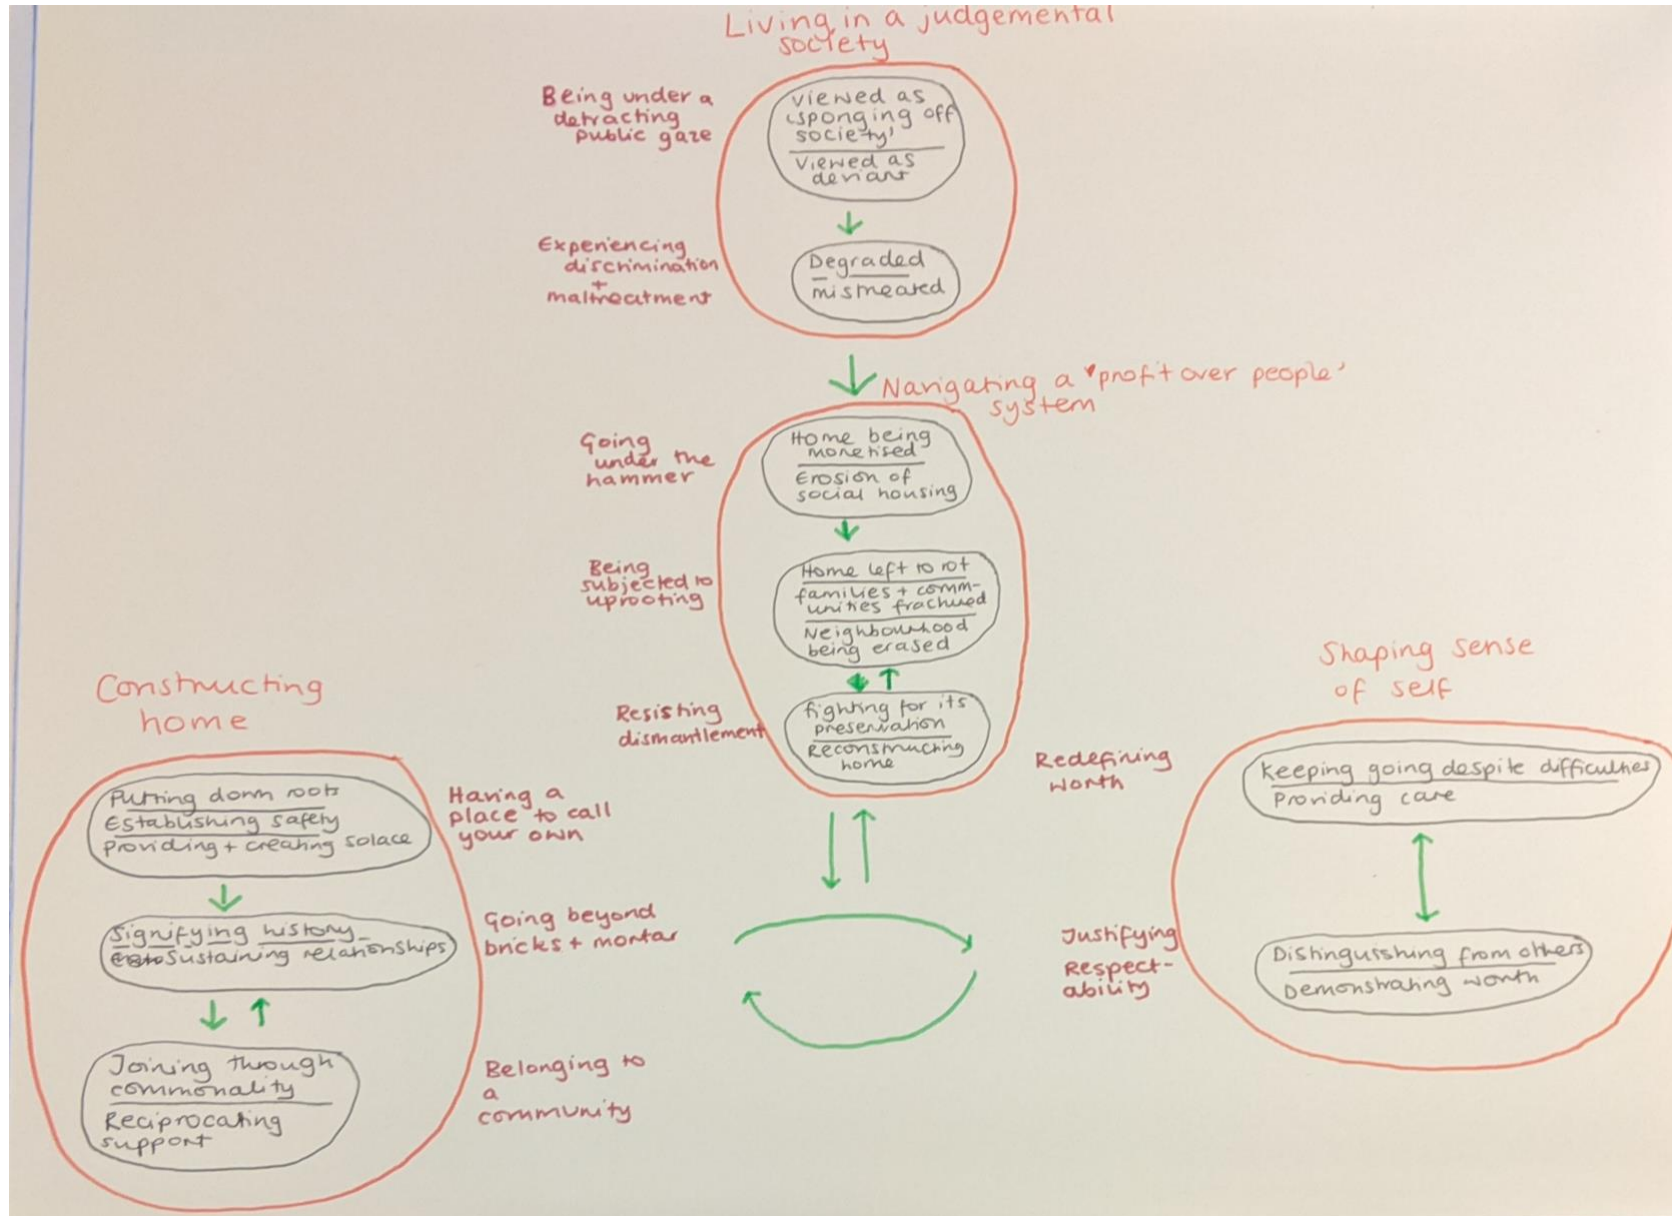 Living in a judgemental
society
Being under a
detracting
public gaze
viewed as
'sponging off
society'
Viewed as
deviant
Experiencing
discrimination
+
maltreatment
Degraded
mistreated
Navigating a 'profit over people'
system
Going
under the
hammer
Home being
monetised
Erosion of
social housing
Being
subjected to
uprooting
Home left to rot
families + comm-
unities fractured
Neighbourhood
being erased
Resisting
dismantlement
fighting for its
preservation
Reconstructing
home
Constructing
home
Putting down roots
Establishing safety
Providing + creating solace
Having a
place to call
your own
Signifying history
Sustaining relationships
Going beyond
bricks + mortar
Joining through
commonality
Reciprocating
support
Belonging to
a
community
Shaping sense
of self
Redefining
worth
Keeping going despite difficulties
Providing care
Justifying
Respect-
ability
Distinguishing from others
Demonstrating worth